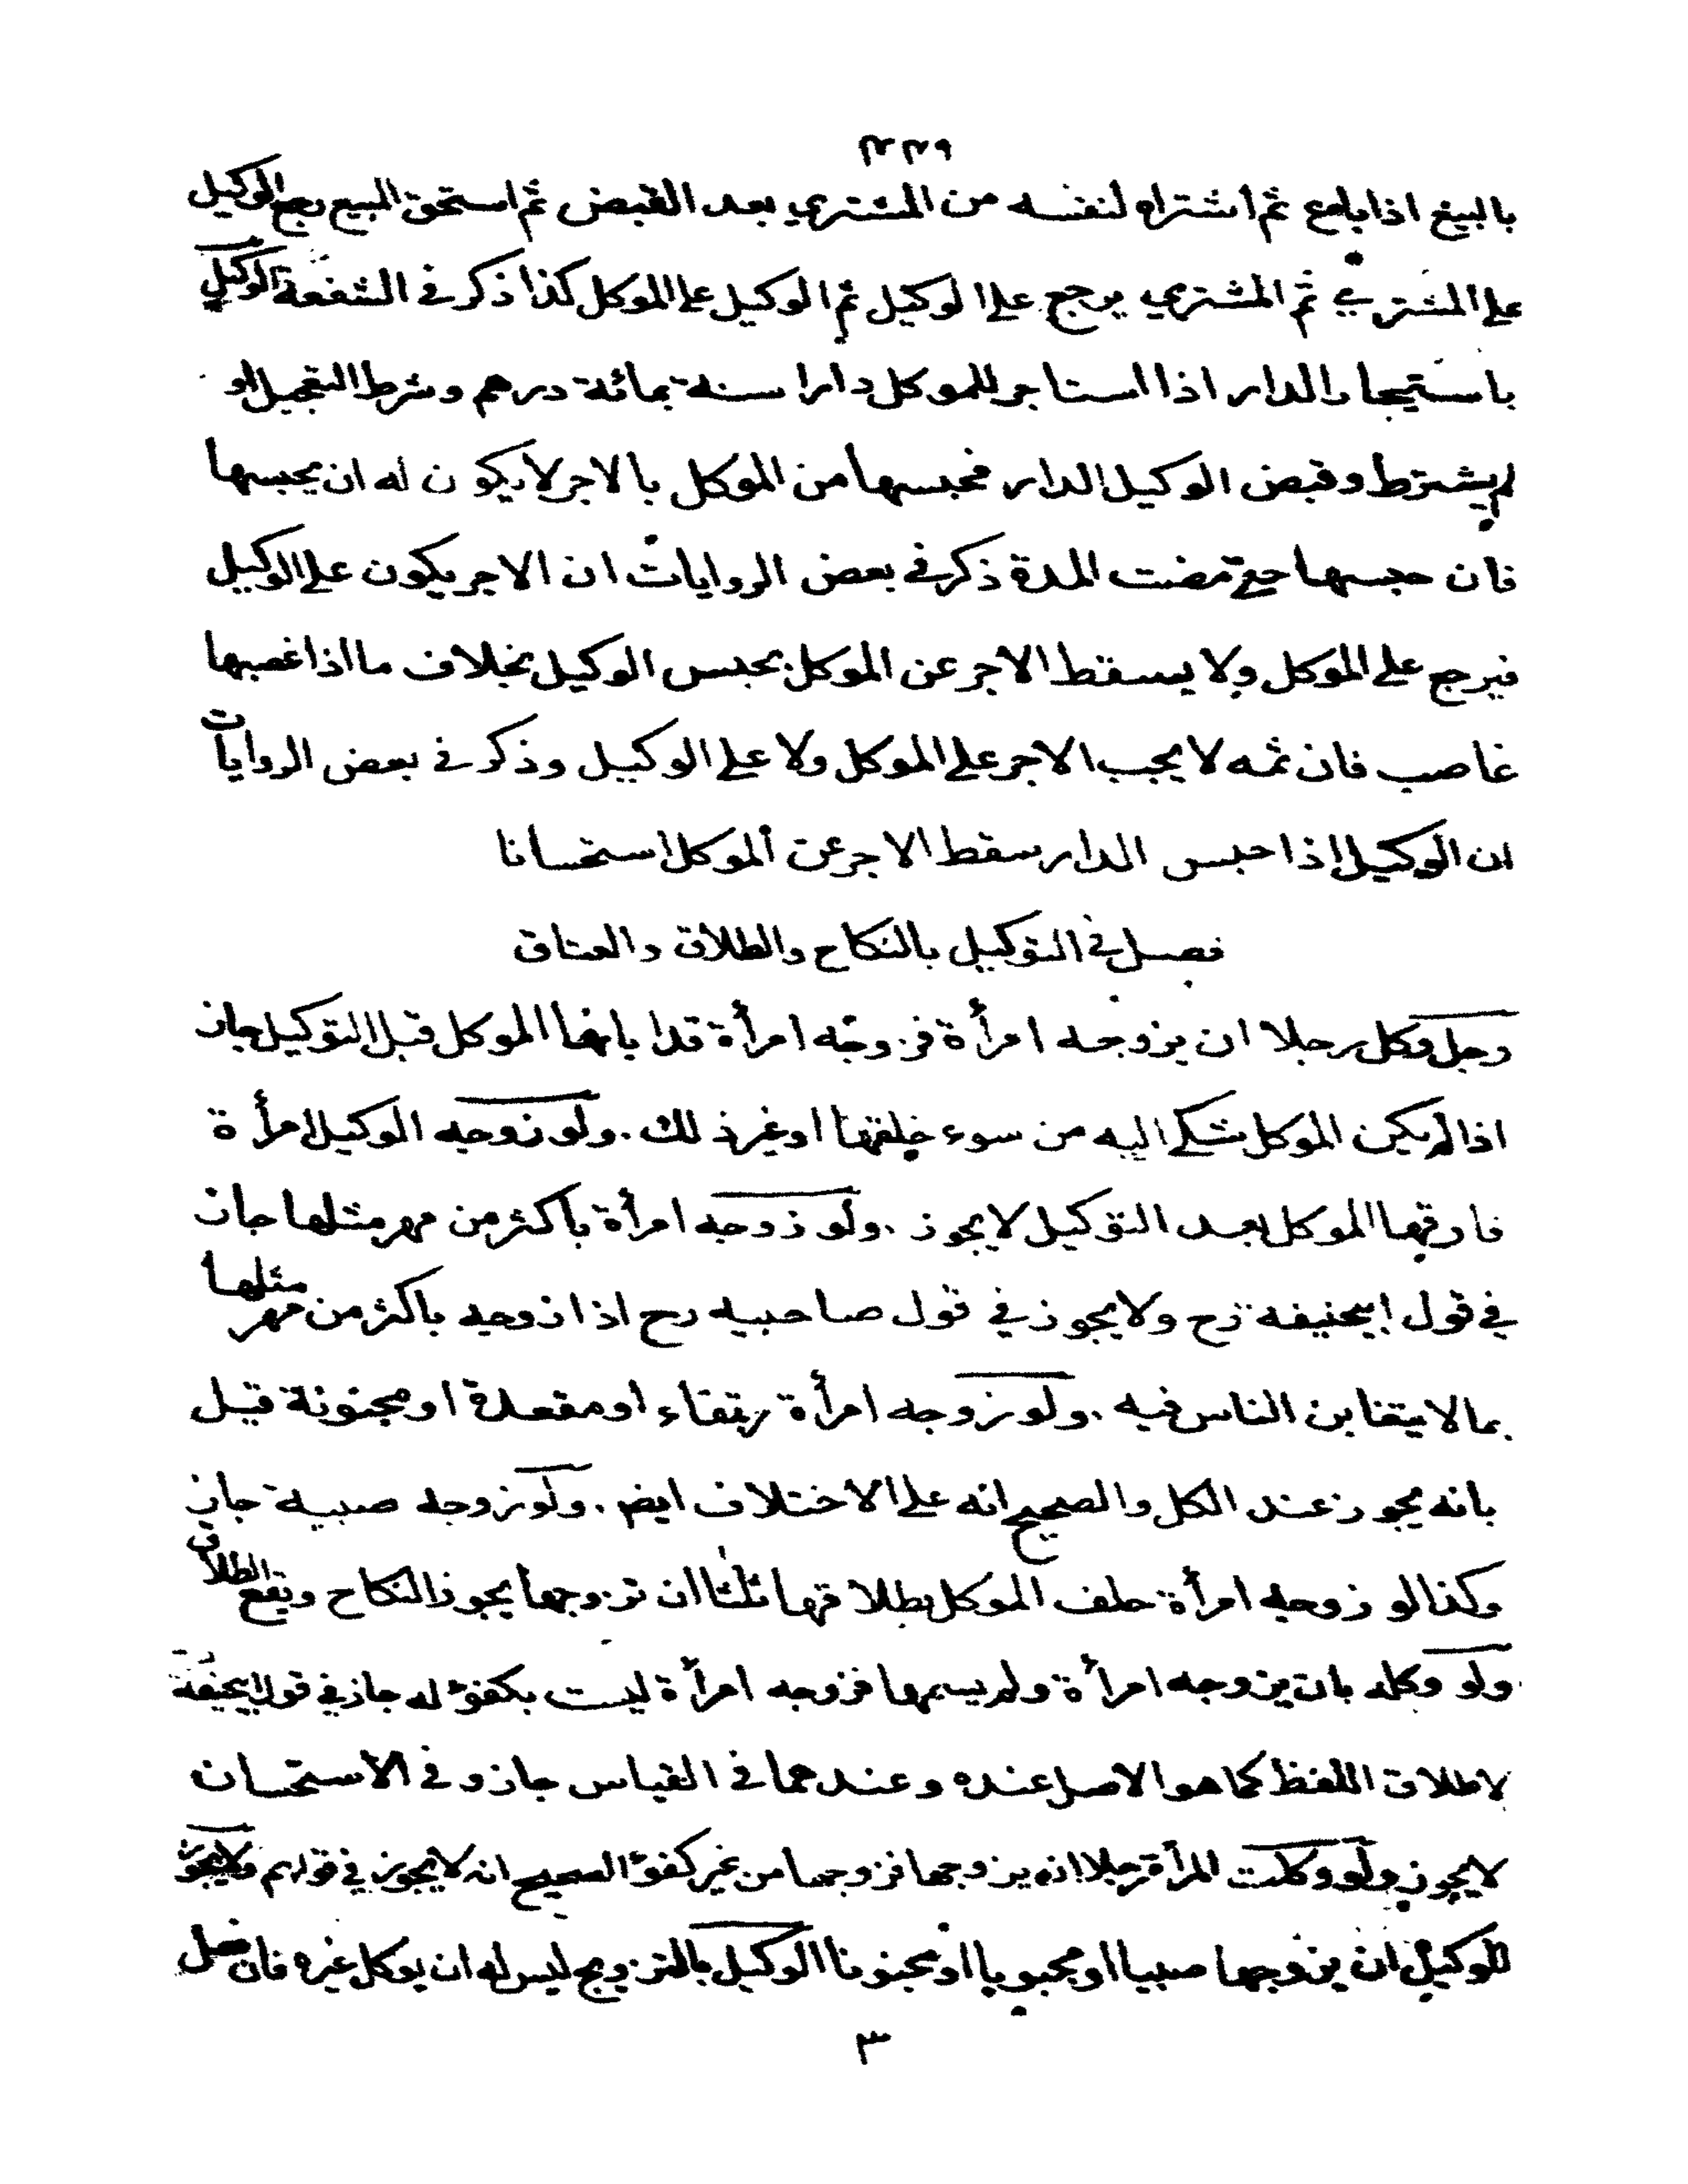 بالبيع اذا باع ثم اشتراه لنفسه من المشتري بعد القبض ثم استحق المبيع رجع الوكيل
على المشتري ثم المشتري يرجع على الوكيل ثم الوكيل على الموكل كذا ذكر في الشفعة الوكيل
باستيجار الدار اذا استاجر للموكل دارا سنة بمائة درهم وشرط التعجيل او
لم يشترط وقبض الوكيل الدار فحبسها من الموكل بالاجر لا يكون له ان يحبسها
فان حبسها حتى مضت المدة ذكر في بعض الروايات ان الاجر يكون على الوكيل
فيرجع على الموكل ولا يسقط الاجر عن الموكل بحبس الوكيل بخلاف ما اذا غصبها
غاصب فان ثمه لا يجب الاجر على الموكل ولا على الوكيل وذكر في بعض الروايات
ان الوكيل اذا حبس الدار سقط الاجر عن الموكل استحسانا
فصل في التوكيل بالنكاح والطلاق والعتاق
رجل وكل رجلا ان يزوجه امرأة فزوجه امرأة قد ابانها الموكل قبل التوكيل جاز
اذا لم يكن الموكل شكى اليه من سوء خلقها او غير ذلك . ولو زوجه الوكيل امرأة
فارقها الموكل بعد التوكيل لا يجوز . ولو زوجه امرأة باكثر من مهر مثلها جاز
في قول ابيحنيفة رح ولا يجوز في قول صاحبيه رح اذا زوجه باكثر من مهر مثلها
بما لا يتغابن الناس فيه . ولو زوجه امرأة رتقاء او مقعدة او مجنونة قيل
بانه يجوز عند الكل والصحيح انه على الاختلاف ايض . ولو زوجه صبية جاز
وكذا لو زوجه امرأة حلف الموكل بطلاقها ثلثا ان تزوجها يجوز النكاح ويقع الطلاق
ولو وكله بان يزوجه امرأة ولم يسمها فزوجه امرأة ليست بكفؤ له جاز في قول ابيحنيفة
لاطلاق اللفظ كما هو الاصل عنده وعندهما في القياس جاز وفي الاستحسان
لا يجوز ولو وكلت المرأة رجلا ان يزوجها فزوجها من غير كفؤ الصحيح انه لا يجوز في قولهم ولا يجوز
للوكيل ان يزوجها صبيا او مجبوبا او مجنونا الوكيل بالتزويج ليس له ان يوكل غيره فان فعل
٣